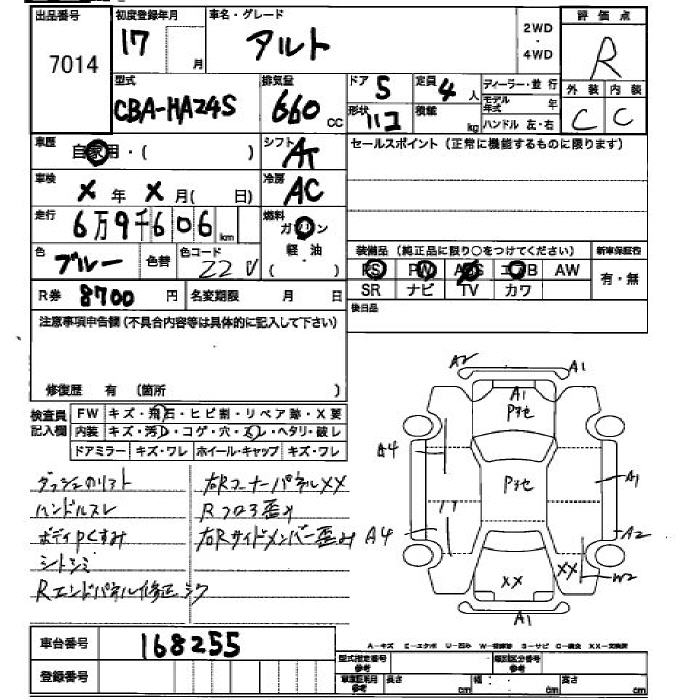 出品番号 初度登録年月 車名・グレード 2WD・4WD 評価点
7014 17 月 アルト R
型式 排気量 ドア 5 定員 4 人 ディーラー・並行 外装 内装
CBA-HA24S 660 cc 形状 ハコ 積載 kg モデル年式 年 C C
ハンドル 左・右
車歴 自家用・( ) シフト AT セールスポイント(正常に機能するものに限ります)
車検 X 年 X 月( 日) 冷房 AC
走行 6万9千606 km 燃料 ガソリン
軽油
( )
色 ブルー 色替 色コード Z2U 装備品 (純正品に限り○をつけてください) 新車保証書
PS PW ABS エアB AW 有・無
R券 8700 円 名変期限 月 日 SR ナビ TV カワ
注意事項申告欄(不具合内容等は具体的に記入して下さい) 後日品
修復歴 有 (箇所 )
検査員記入欄 FW キズ・飛石・ヒビ割・リペア跡・X要
内装 キズ・汚レ・コゲ・穴・スレ・ヘタリ・破レ
ドアミラー キズ・ワレ ホイール・キャップ キズ・ワレ
ダッシュのリフト 右Rコーナーパネルxx
ハンドルスレ Rフロア歪み
ボディPくすみ 右Rサイドメンバー歪み
シトシミ
Rエンドパネル修正シワ
A2 A1
A1
Pヨセ
A4 Pヨセ A1
A4 A2
xx xx W2
A1
車台番号 168255
登録番号
A-キズ E-エクボ U-凹み W-補修跡 S-サビ C-腐食 XX-交換済
型式指定番号 参考 類別区分番号 参考
車庫証明用 参考 長さ cm 幅: cm 高さ cm